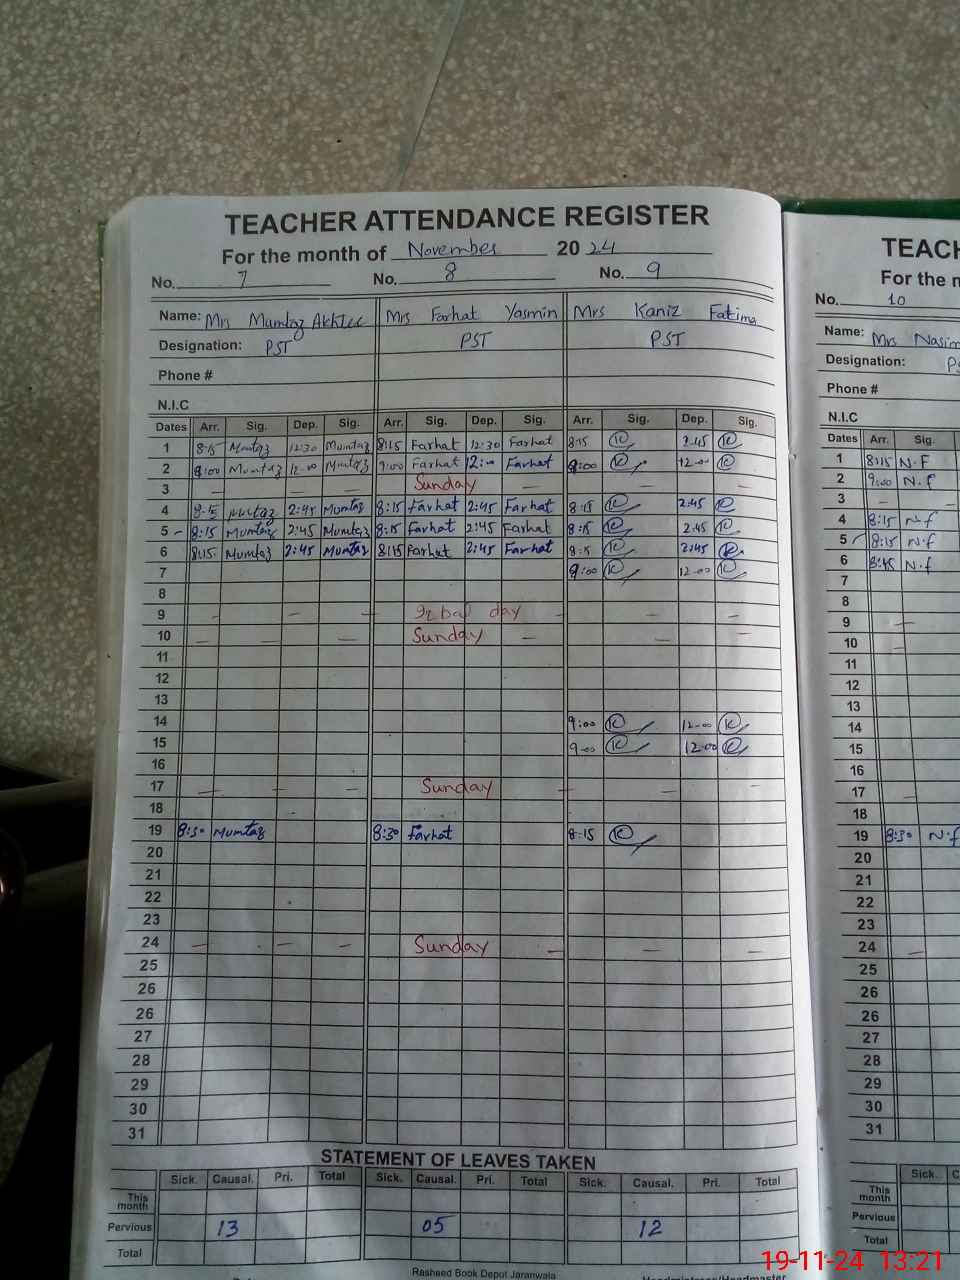 TEACHER ATTENDANCE REGISTER
For the month of November 2024
No. 7 No. 8 No. 9
Name: Mrs Mumtaz Akhter Mrs Farhat Yasmin Mrs Kaniz Fatima
Designation: PST PST PST
Phone #
N.I.C
Dates Arr. Sig. Dep. Sig. Arr. Sig. Dep. Sig. Arr. Sig. Dep. Sig.
1 8:15 Mumtaz 12:30 Mumtaz 8:15 Farhat 12:30 Farhat 8:15 K 2:45 K
2 9:00 Mumtaz 12:00 Mumtaz 9:00 Farhat 12:00 Farhat 9:00 K 12:00 K
3 — — — Sunday — — —
4 8:15 Mumtaz 2:45 Mumtaz 8:15 Farhat 2:45 Farhat 8:15 K 2:45 K
5 8:15 Mumtaz 2:45 Mumtaz 8:15 Farhat 2:45 Farhat 8:15 K 2:45 K
6 8:15 Mumtaz 2:45 Mumtaz 8:15 Farhat 2:45 Farhat 8:15 K 2:45 K
7 9:00 K 12:00 K
8
9 - — — Iqbal day - — —
10 — — — Sunday — — —
11
12
13
14 9:00 K 12-00 K
15 9-00 K 12-00 K
16
17 — — — Sunday — — —
18
19 8:30 Mumtaz 8:30 Farhat 8:15 K
20
21
22
23
24 — — — Sunday — — —
25
26
26
27
28
29
30
31
STATEMENT OF LEAVES TAKEN
Sick. Causal. Pri. Total Sick. Causal. Pri. Total Sick. Causal. Pri. Total
This month
Pervious 13 05 12
Total
Rasheed Book Depot Jaranwala
Headmistress/Headmaster
TEACH
For the m
No. 10
Name: Mrs Nasim
Designation: PS
Phone #
N.I.C
Dates Arr. Sig.
1 8:15 N.F
2 9:00 N.f
3 -
4 8:15 N.f
5 8:15 N.f
6 8:15 N.f
7
8
9 —
10 —
11
12
13
14
15
16
17 —
18
19 8:30 N.f
20
21
22
23
24 —
25
26
26
27
28
29
30
31
Sick. C
This month
Pervious
Total
19-11-24 13:21